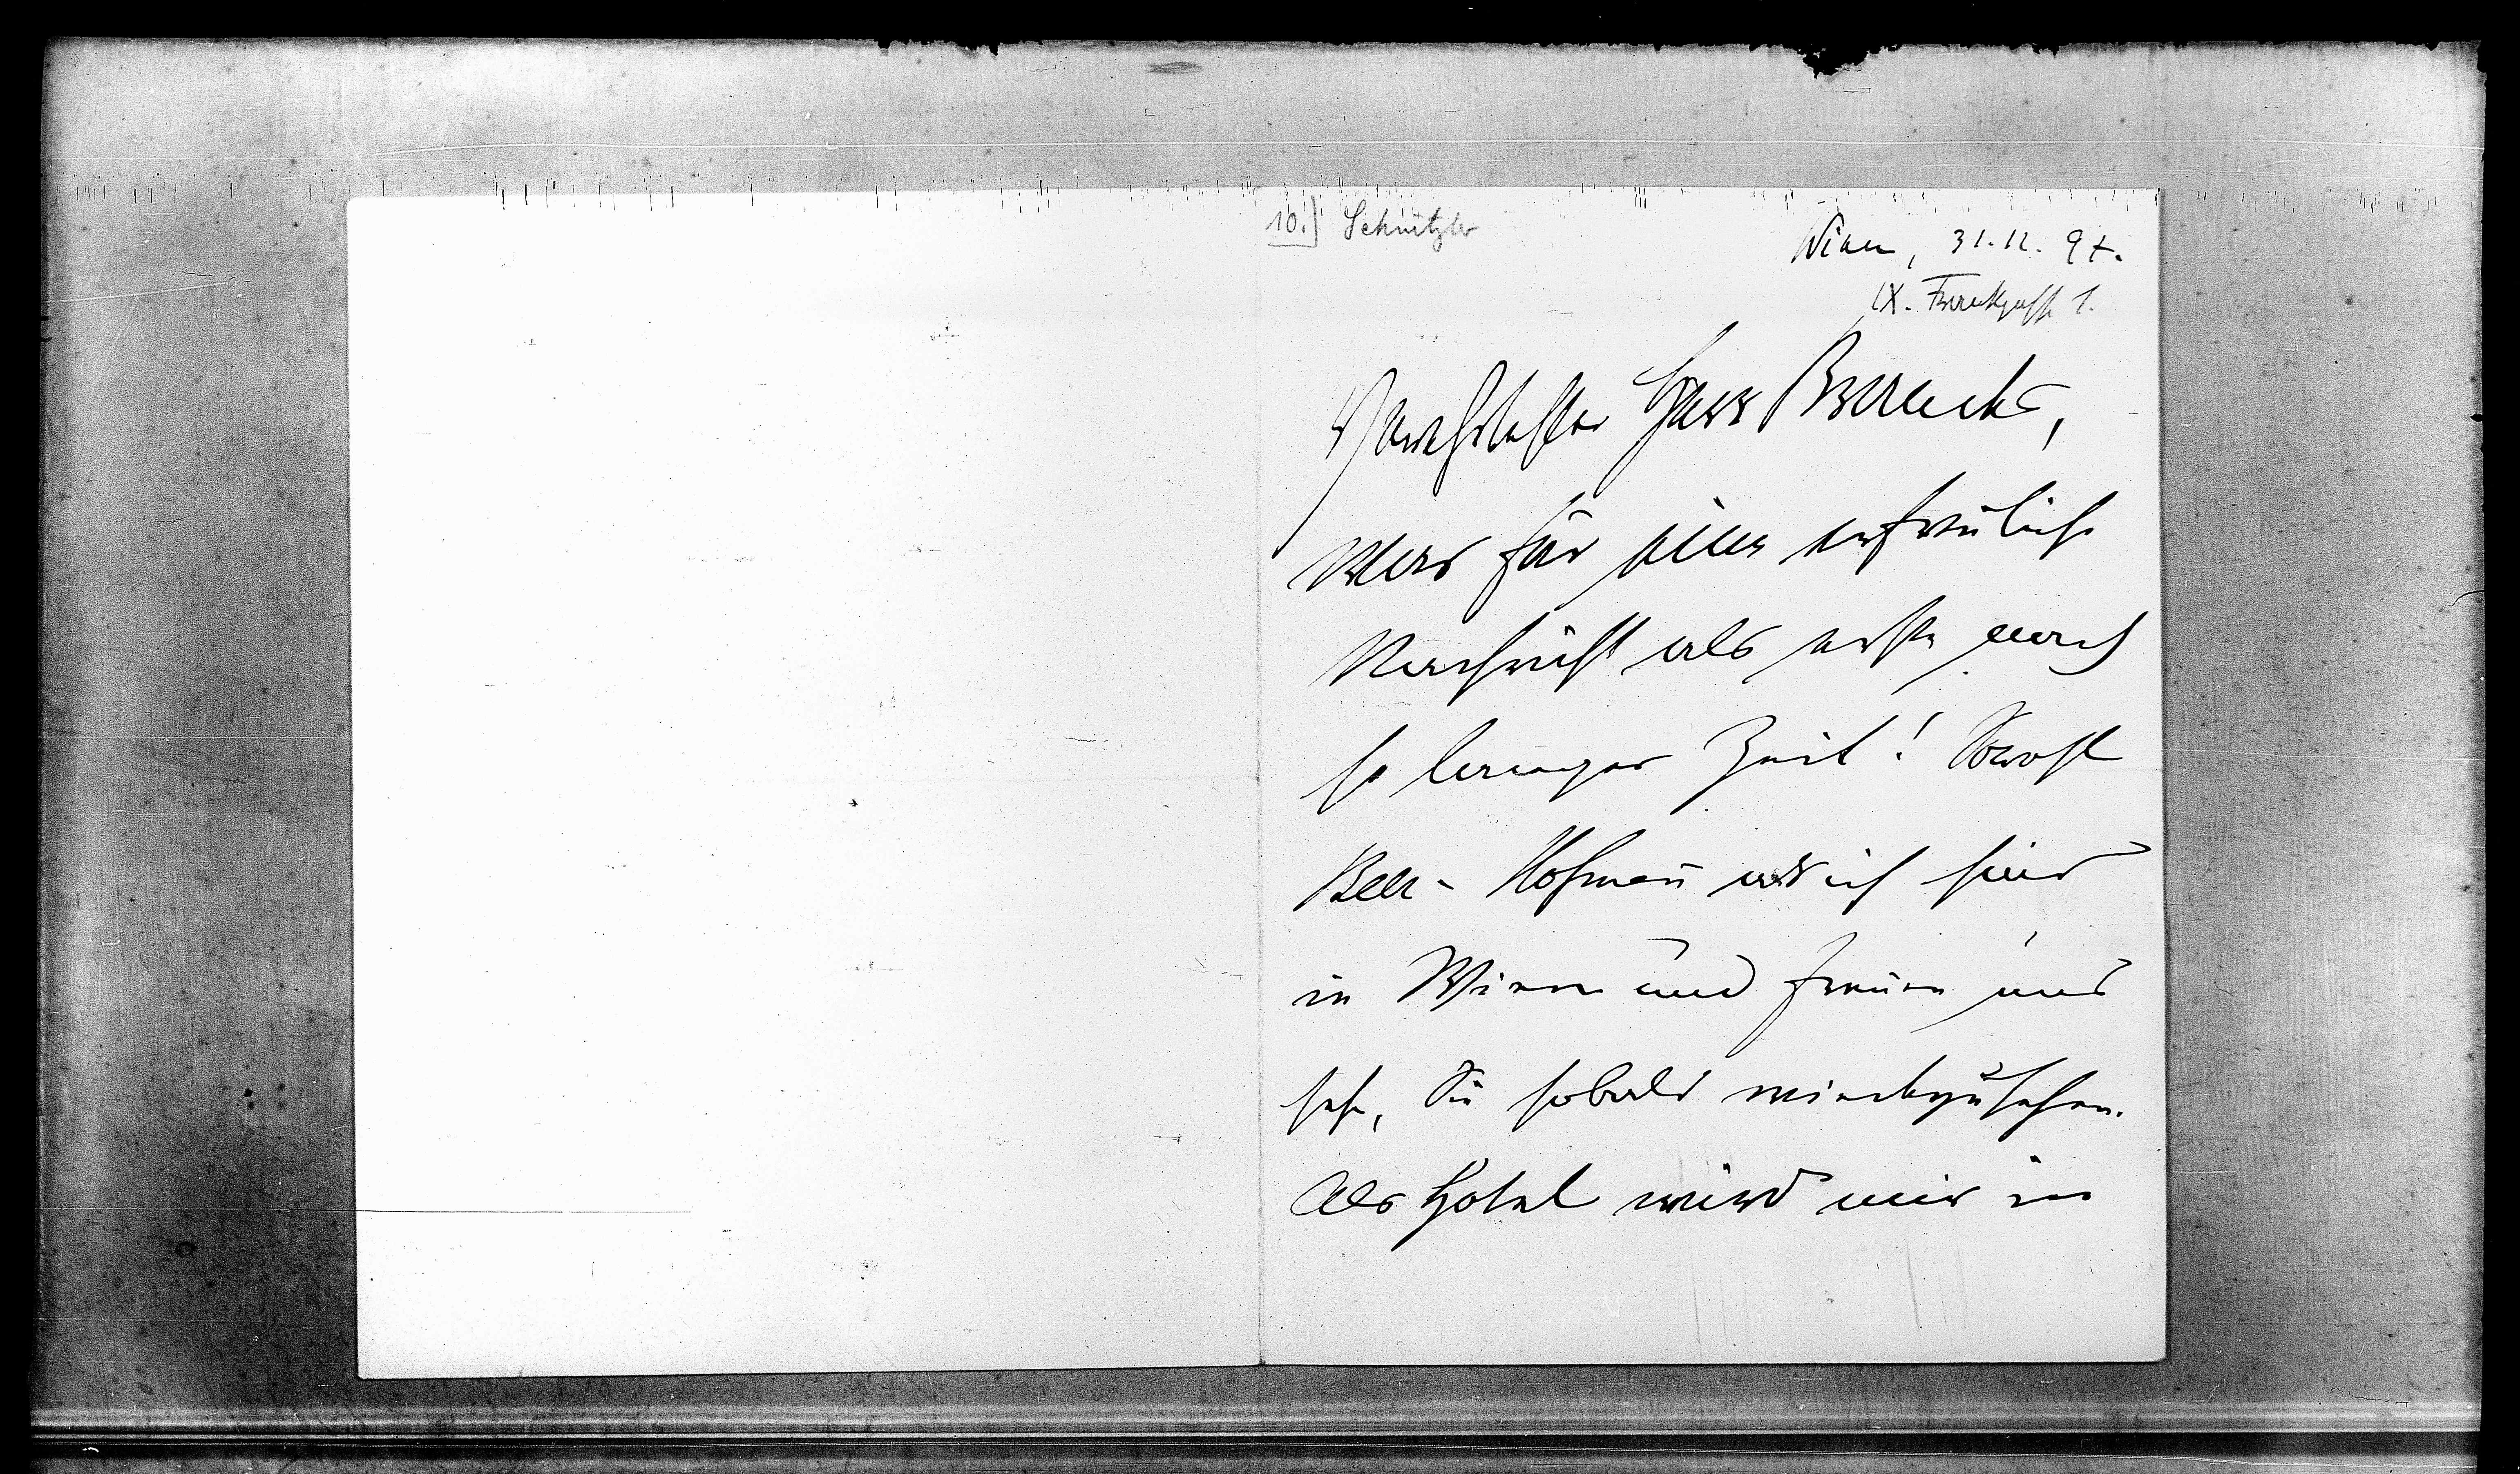 10.) Schnitzler
Wien, 31.12.97.
IX. Frankgasse 1.
Verehrtester Herr Brandes,
Was für eine erfreuliche
Nachricht als erste nach
so langer Zeit! Sowohl
Beer-Hofmann als ich sind
in Wien und freuen uns
sehr, Sie sobald wiederzusehen.
Als Hotel wird mir in